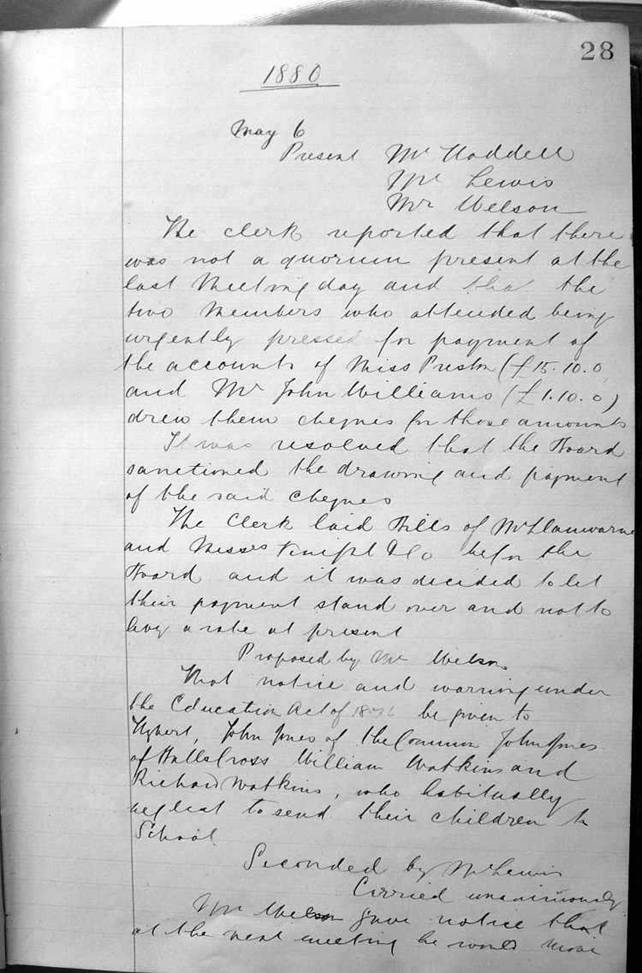 28
1880
May 6
Present Mr Hoddell
Mr Lewis
Mr Welson
The Clerk reported that there
was not a quorum present at the
last Meeting day and that the
two Members who attended being
urgently pressed for payment of
the accounts of Miss Preston (£15.10.0
and Mr John Williams (£1.10.0)
drew them cheques for those amounts
It was resolved that the Board
sanctioned the drawing and payment
of the said cheques
The Clerk laid Bills of Mr Llanwarne
and Messrs & Co before the
Board and it was decided to let
their payment stand over and not to
levy a rate at present
Proposed by Mr Welson
That notice and warning under
the Education Act of 1876 be given to
John Jones of the Common John Jones
of Halls Cross William Watkins and
Richard Watkins, who habitually
neglect to send their children to
School
Seconded by Mr Lewis
Carried unanimously
Mr Welson gave notice that
at the next meeting he would move